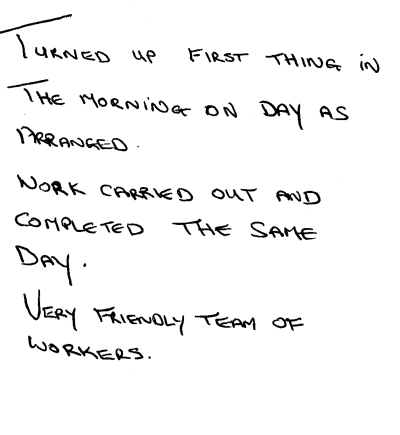 TURNED UP FIRST THING IN
THE MORNING ON DAY AS
ARRANGED.
WORK CARRIED OUT AND
COMPLETED THE SAME
DAY.
VERY FRIENDLY TEAM OF
WORKERS.